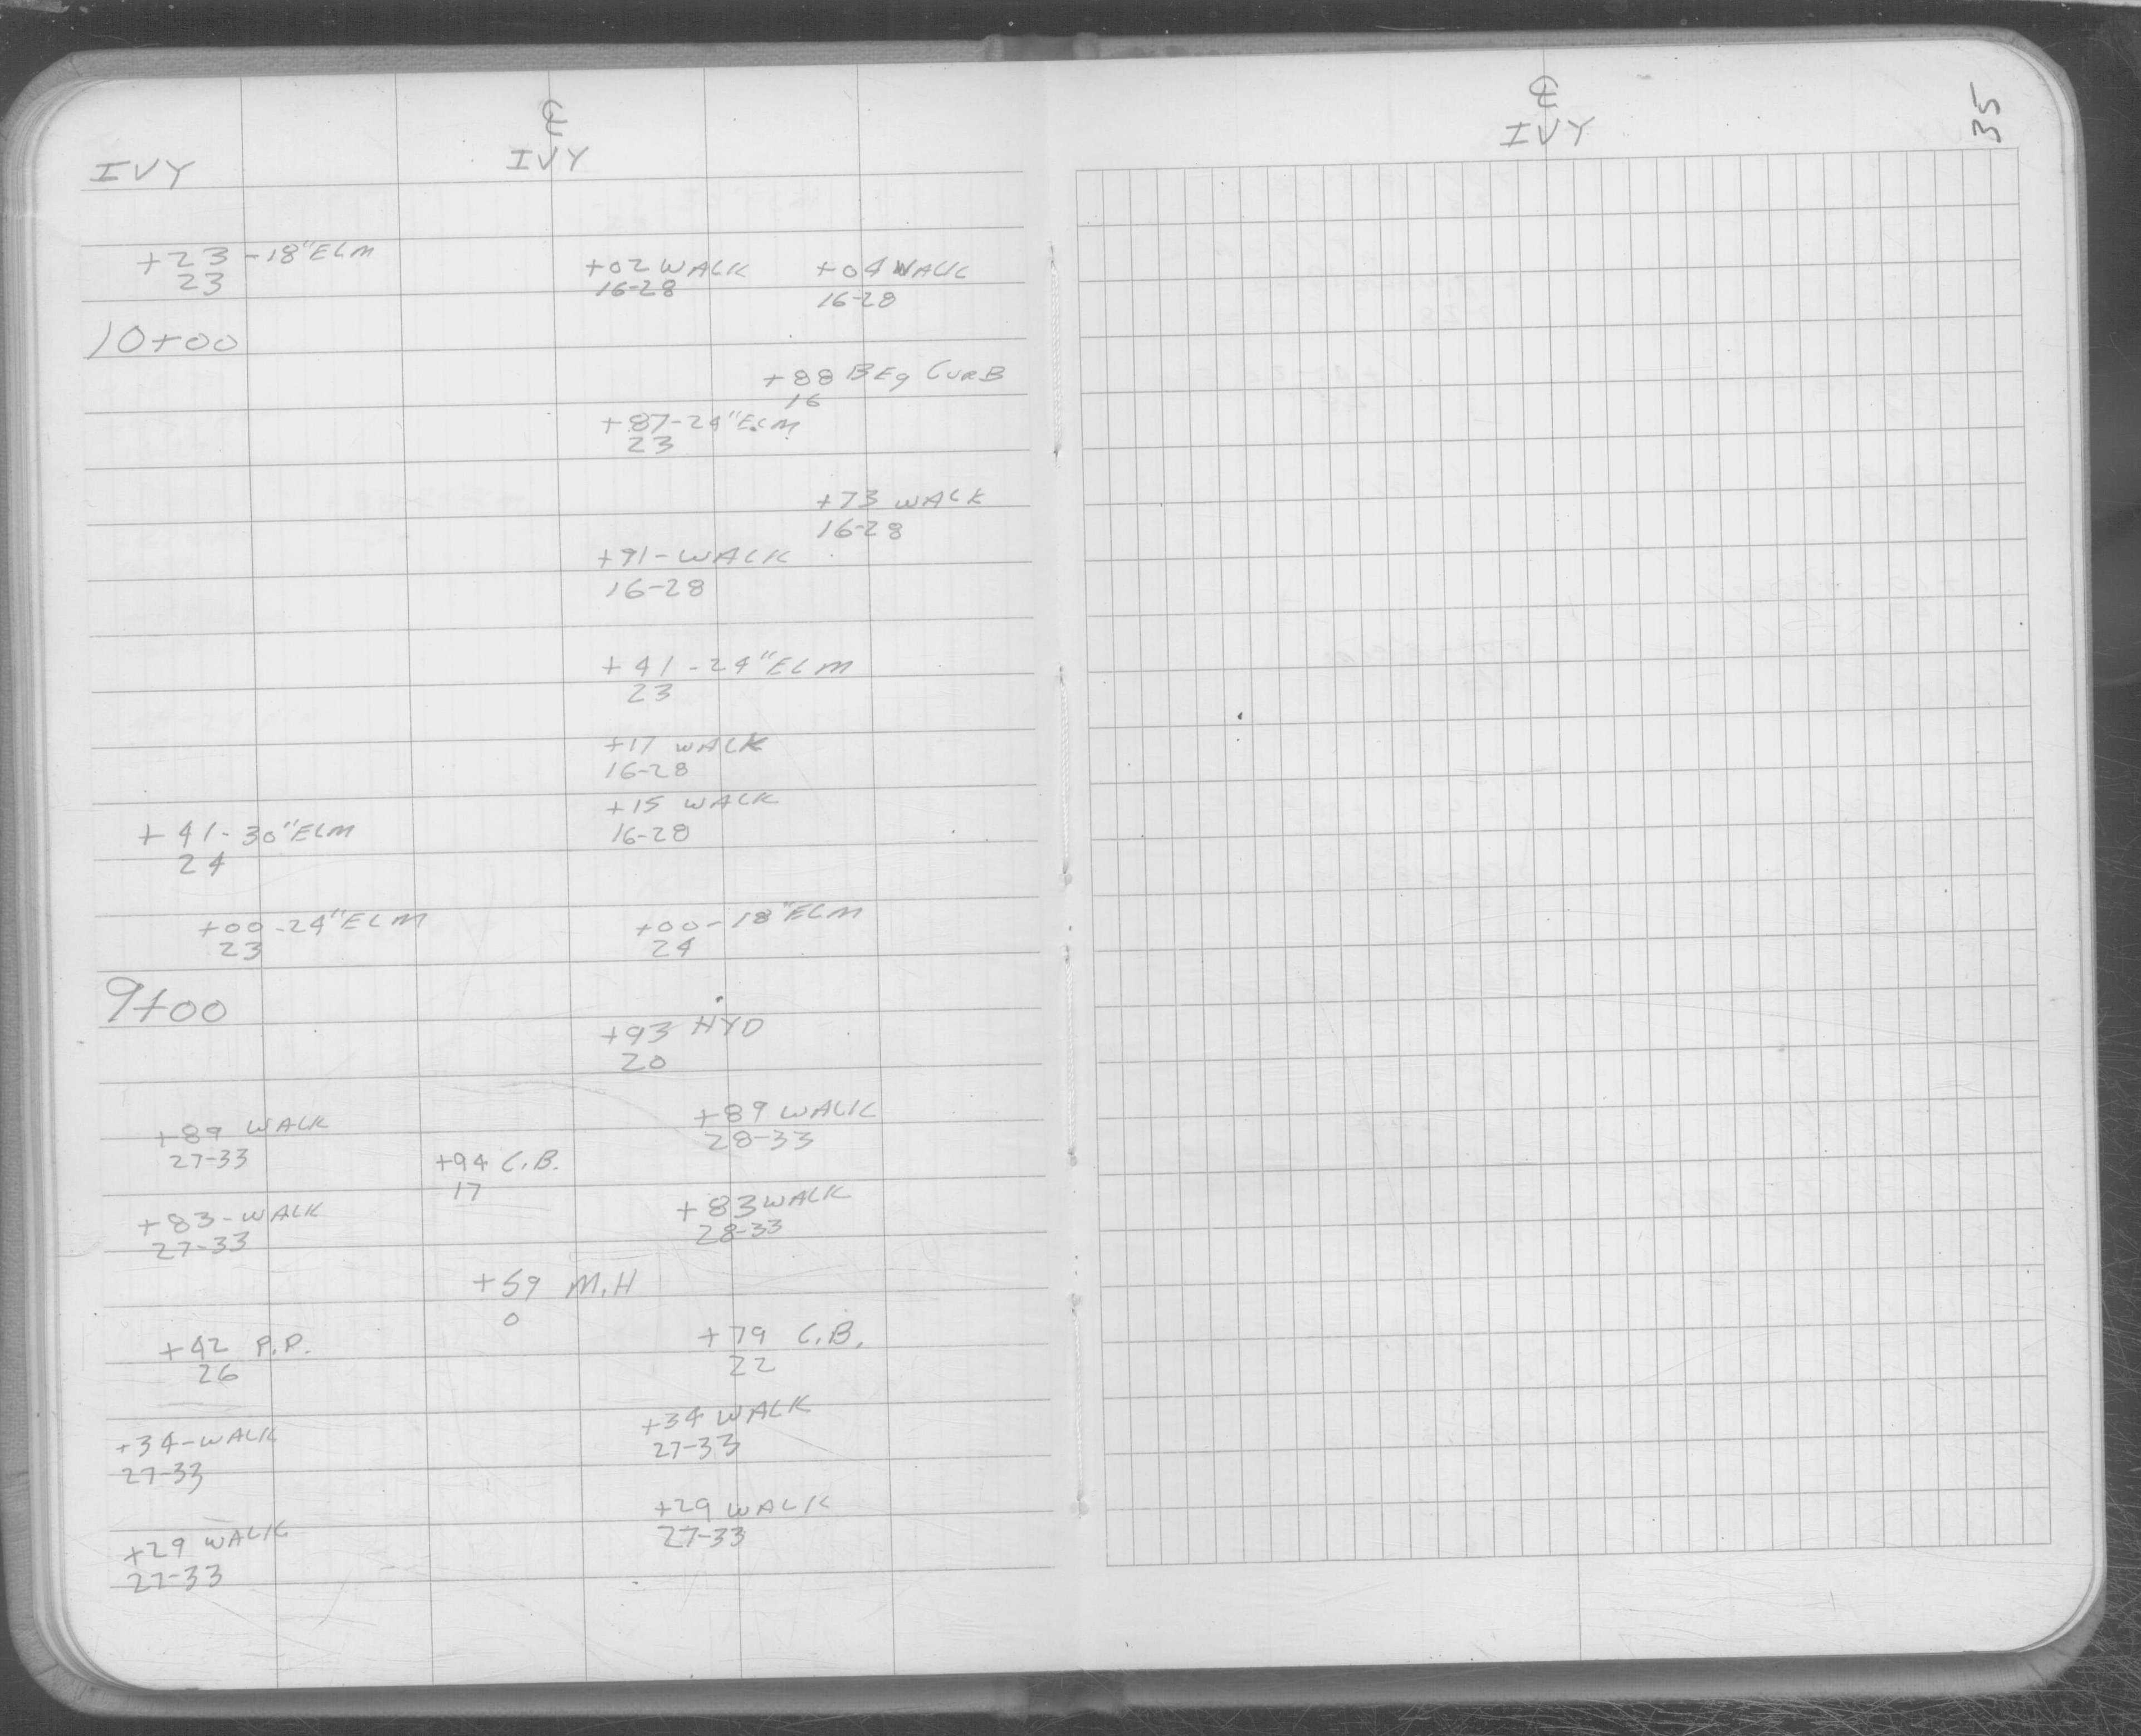 ℄
IVY IVY
+23-18"ELM
23
+02 WALK +04 WALK
16-28 16-28
10+00
+88 BEg CURB
16
+87-24"ELM
23
+73 WALK
16-28
+91-WALK
16-28
+41-24"ELM
23
+17 WALK
16-28
+15 WALK
16-28
+41-30"ELM
24
+00-24"ELM +00-18"ELM
23 24
9+00
+93 HYD
20
+89 WALK +89 WALK
27-33 28-33
+94 C.B.
17
+83-WALK +83 WALK
27-33 28-33
+59 M.H
0
+42 P.P. +79 C.B.
26 22
+34-WALK +34 WALK
27-33 27-33
+29 WALK +29 WALK
27-33 27-33
℄
IVY
35